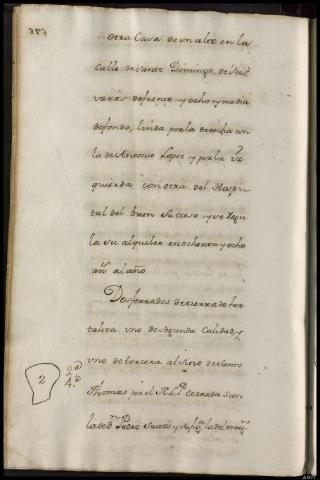 Otra Casa de un alto en la
Calle de Santo Domingo, de seis
varas de frente y ocho y media
de fondo, linda por la derecha con
la de Antonio Lopez y por la iz
quierda con otra del Hospi
tal del buen Suceso y se regu
la su alquiler en ochenta y ocho
rr.^s al año
Dos ferrados de tierra de hor
taliza: uno de segunda Calidad, y
uno de tercera al Sitio de Santo
Thomas por el R. L.^do Cerrada s con
la de d.^n Pedro Suarez y
2
2.^a
4.^a